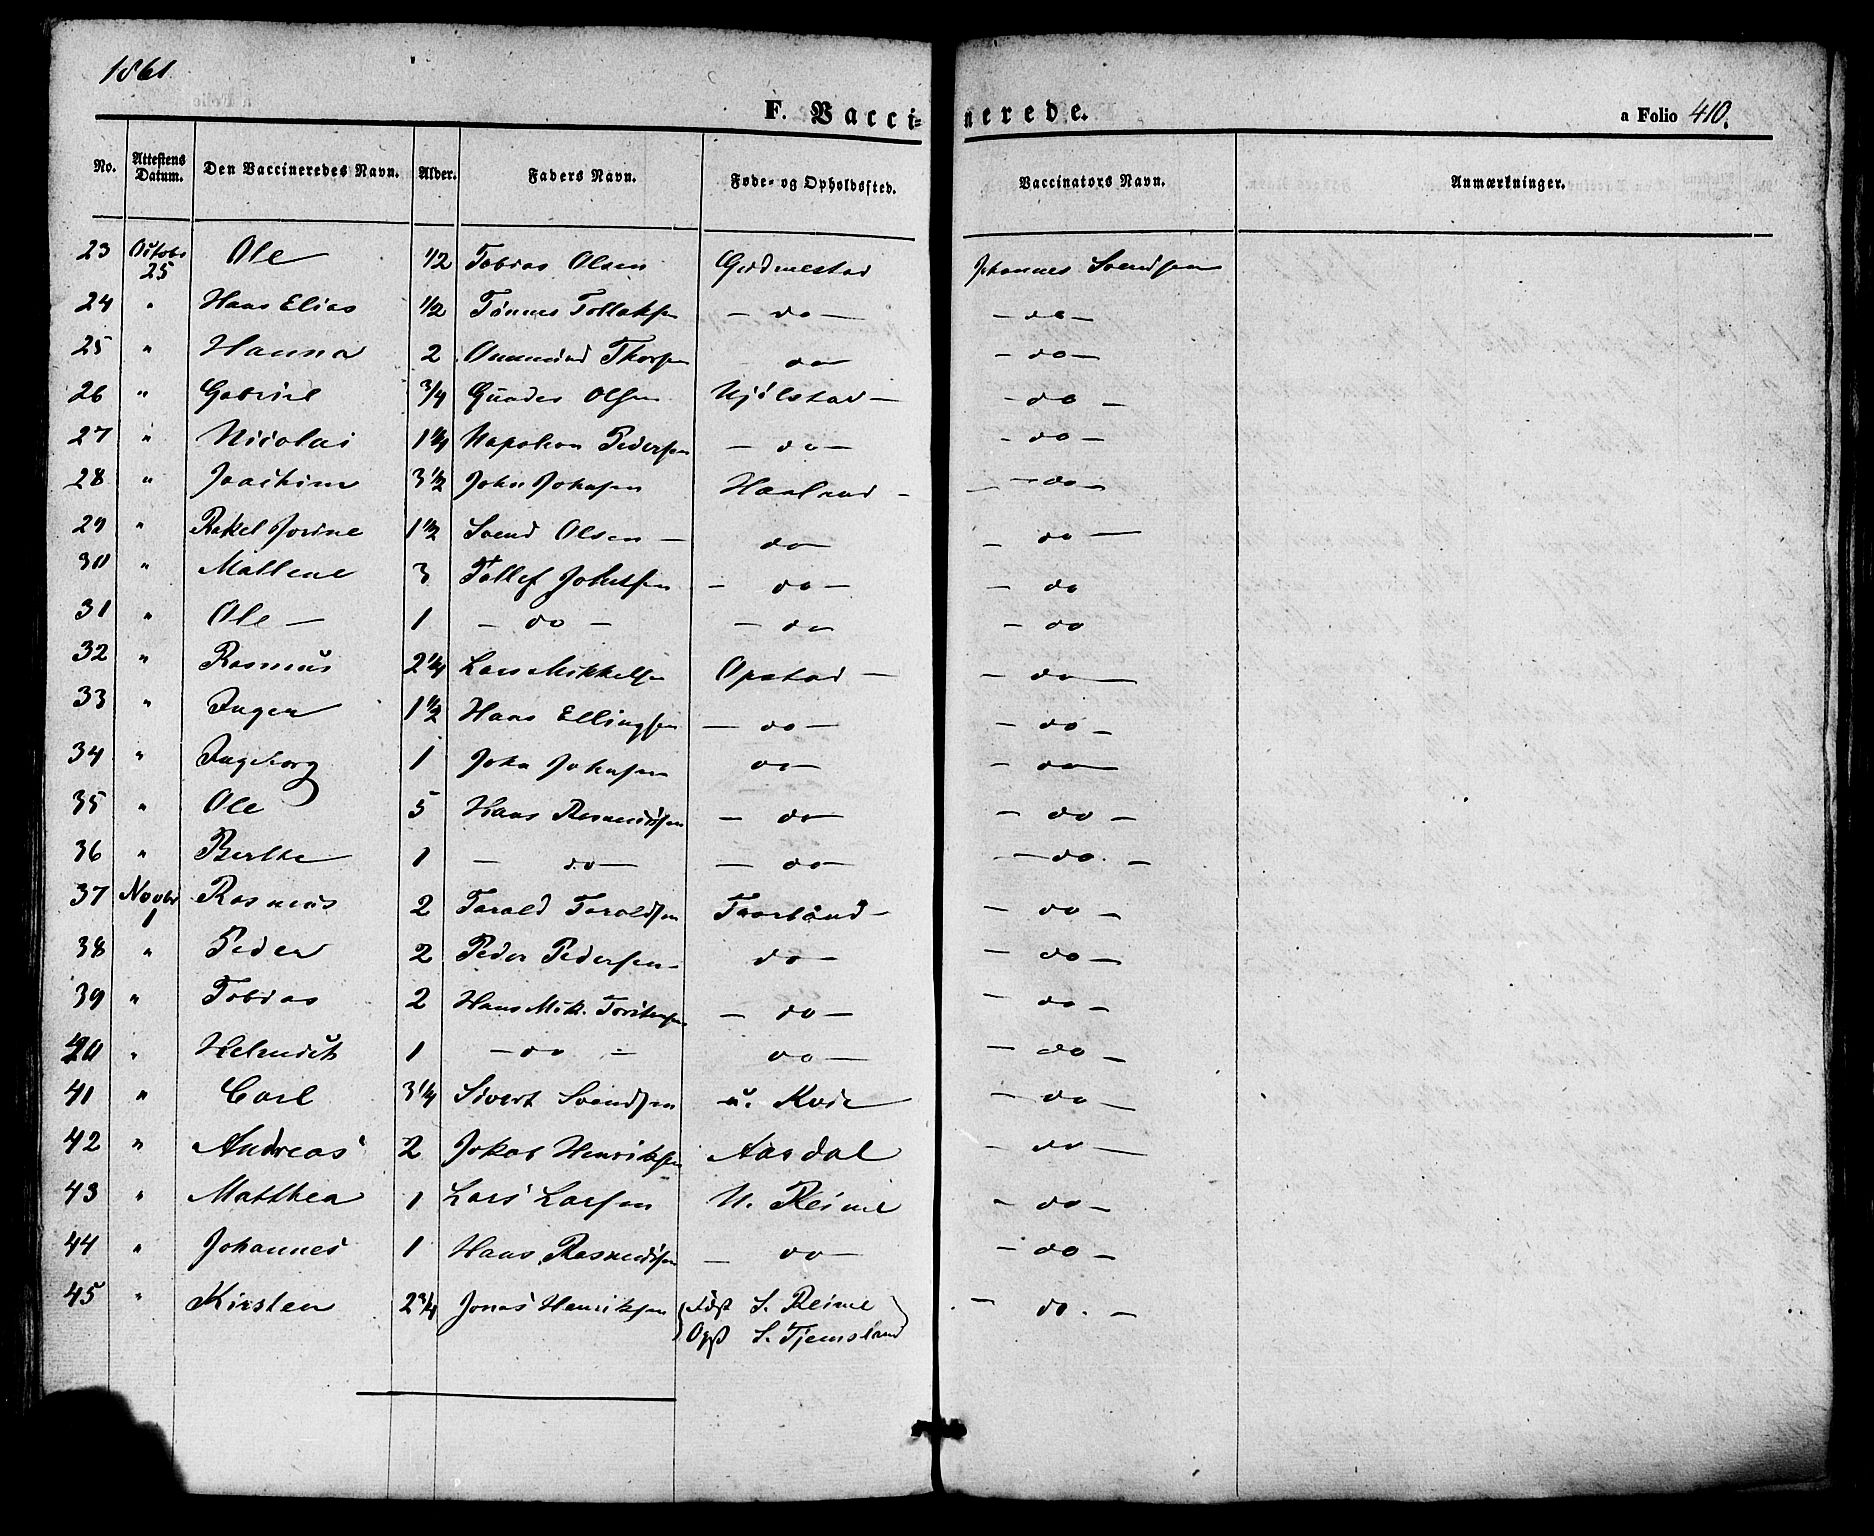 1861
F. Vaccinerede.
a Folio 410.
No. Attestens Datum. Den Vaccineredes Navn. Alder. Faders Navn. Føde- og Opholdssted. Vaccinators Navn. Anmærkninger.
23 Octobr 25 Ole 1/2 Tobias Olsen Grødmestad Johannes Svendsen
24 " Hans Elias 1/2 Tønnes Tollaksen – do – – do –
25 " Hanna 2 Ommund Thorsen do – – do –
26 " Gabriel 3/4 Olsen Njølstad – – do –
27 " Nicolai 1 1/4 Napoleon Pedersen – do – – do –
28 " Joachim 3 1/2 John Johnsen Haaland – – do –
29 " Rakel Jorine 1 1/2 Svend Olsen – do – – do –
30 " Mallene 3 Tollef – do – – do
31 " Ole – 1 – do – – do – do
32 " Rasmus 2 1/4 Lars Mikkelsen Opstad – – do –
33 " Inger 1 1/2 Hans Ellingsen – do – – do –
34 " Ingeborg 1 John Johnsen do – – do –
35 " Ole 5 Hans Rasmussen – do – do –
36 " Berthe 1 – do – – do – – do. –
37 Novbr 1 Rasmus 2 Tarald Taraldsen – do –
38 " Peder 2 Peder Pedersen – do – – do –
39 " Tobias 2 Hans Mik. – do – – do –
40 " Helmick 1 – do – do – – do –
41 " Carl 3 1/4 Sivert Svendsen u. Kvie – do –
42 " Andreas 2 Jakob Henriksen Aasdal – do –
43 " Matthea 1 Lars Larsen N. Reime – do –
44 " Johannes 1 Hans Rasmussen – do – – do –
45 " Kirsten 2 3/4 Jonas Henriksen Fdst S. Reime – do. –
Opst S. Tjemsland